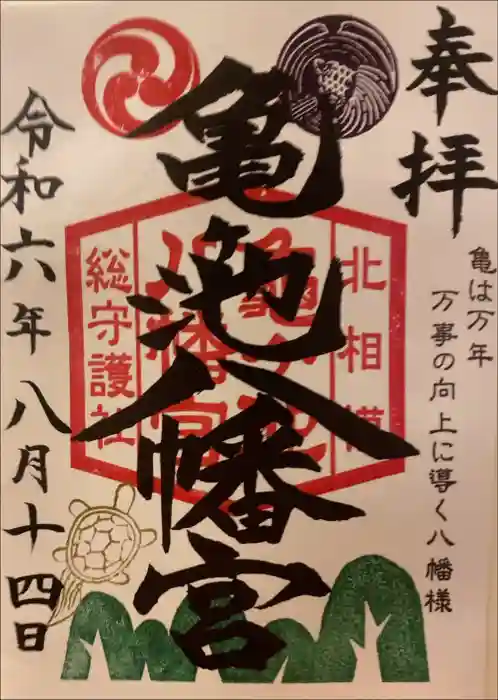 奉拝
亀は万年
万事の向上に導く八幡様
亀池八幡宮
北相模
総守護社
令和六年八月十四日